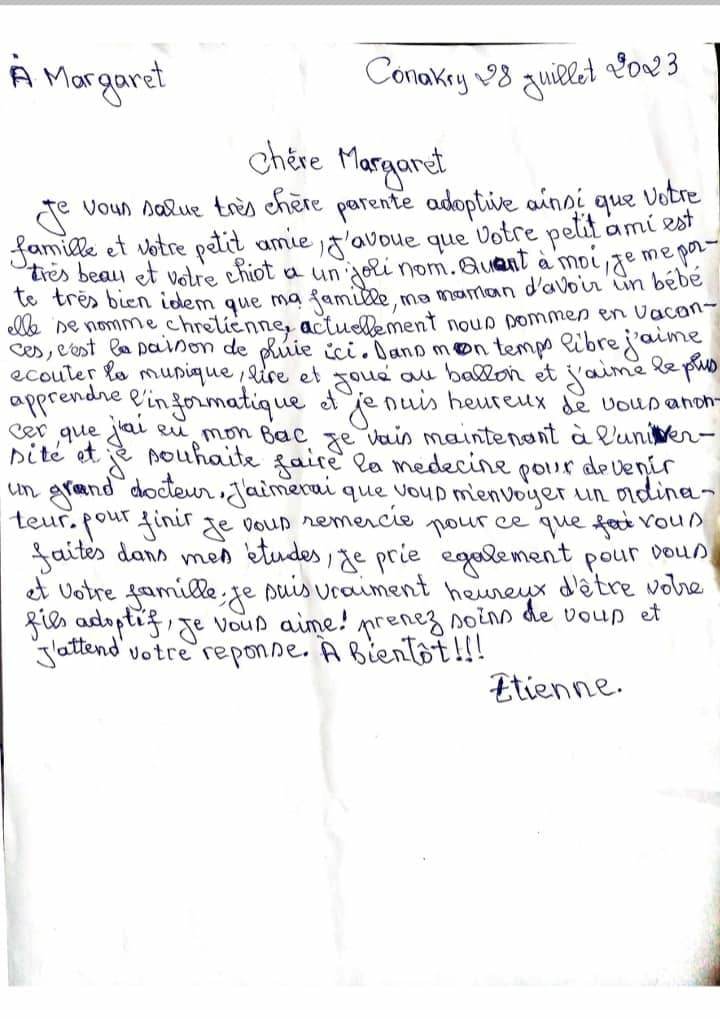 À Margaret
Conakry 28 juillet 2023
chère Margaret
Je vous salue très chère parente adoptive ainsi que votre
famille et votre petit amie, j'avoue que votre petit ami est
très beau et votre chiot a un joli nom. Quant à moi, je me por-
te très bien idem que ma famille, ma maman d'avoir un bébé
elle se nomme chretienne, actuellement nous sommes en vacan-
ces, c'est la saison de pluie ici. Dans mon temps libre j'aime
ecouter la musique, lire et joué au ballon et j'aime le plus
apprendre l'informatique et je suis heureux de vous anon-
cer que j'ai eu mon bac je vais maintenant à l'univer-
sité et je souhaite faire la medecine pour devenir
un grand docteur, j'aimerai que vous m'envoyer un ordina-
teur. pour finir je vous remercie pour ce que fai vous
faites dans mes études, je prie egalement pour vous
et votre famille, je suis vraiment heureux d'être votre
fils adoptif, je vous aime! prenez soins de vous et
j'attend votre reponse. À Bientôt!!!
Etienne.